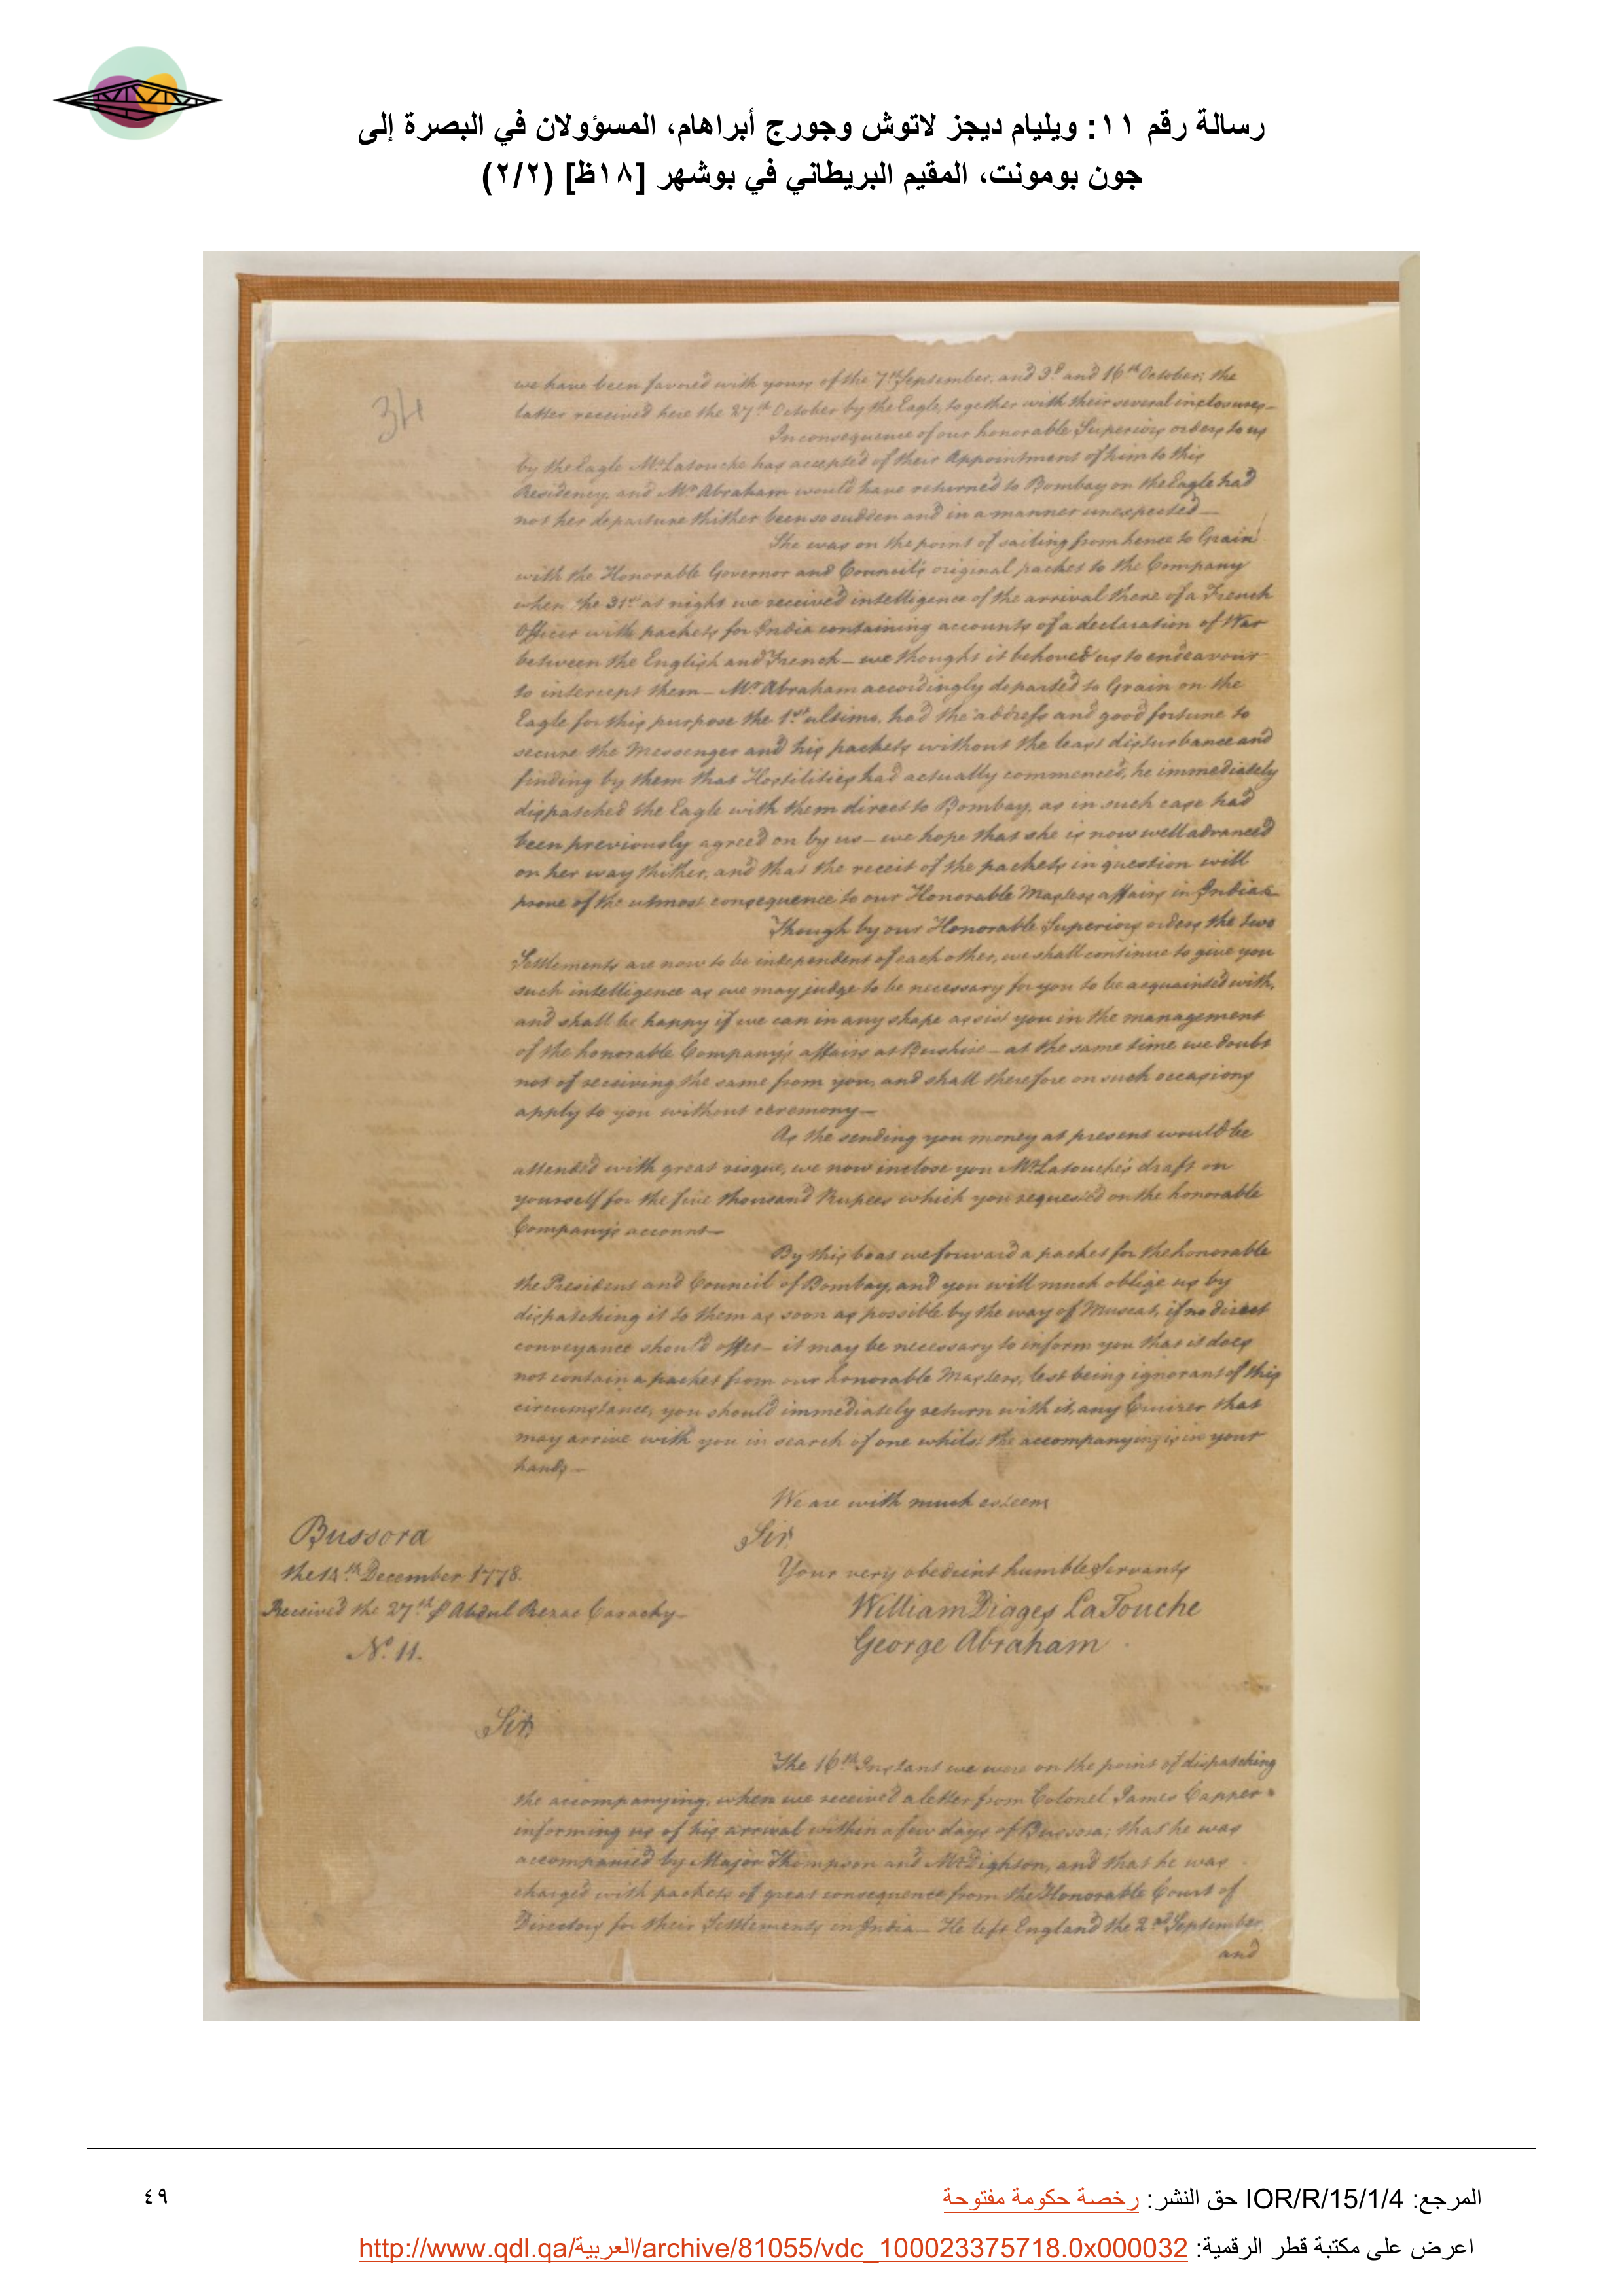 رسالة رقم ١١: ويليام ديجز لاتوش وجورج أبراهام، المسؤولان في البصرة إلى
جون بومونت، المقيم البريطاني في بوشهر [١٨ظ] (٢/٢)
34
we have been favored with yours of the 7th September, and 3d and 16th October; the
latter received here the 27th October by the Eagle, together with their several inclosures_
In consequence of our honorable Superiors orders to us
by the Eagle Mr Latouche has accepted of their Appointment of him to this
Residency, and Mr Abraham would have returned to Bombay on the Eagle had
not her departure thither been so sudden and in a manner unexpected_
She was on the point of sailing from hence to Grain
with the Honorable Governor and Council's original packet to the Company
when the 31st at night we received intelligence of the arrival there of a French
Officer with packets for India containing accounts of a declaration of War
between the English and French_ we thought it behoved us to endeavour
to intercept them_ Mr Abraham accordingly departed to Grain on the
Eagle for this purpose the 1st ultimo, had the address and good fortune to
secure the Messenger and his packets without the least disturbance and
finding by them that Hostilities had actually commenced, he immediately
dispatched the Eagle with them direct to Bombay, as in such case had
been previously agreed on by us_ we hope that she is now well advanced
on her way thither, and that the receit of the packets in question will
prove of the utmost consequence to our Honorable Masters affairs in India_
Though by our Honorable Superiors orders the two
Settlements are now to be independent of each other, we shall continue to give you
such intelligence as we may judge to be necessary for you to be acquainted with,
and shall be happy if we can in any shape assist you in the management
of the honorable Company's affairs at Bushire_ at the same time we doubt
not of receiving the same from you, and shall therefore on such occasions
apply to you without ceremony_
As the sending you money at present would be
attended with great risque, we now inclose you Mr Latouche's draft on
yourself for the five thousand Rupees which you requested on the honorable
Company's account_
By this boat we forward a packet for the honorable
the President and Council of Bombay, and you will much oblige us by
dispatching it to them as soon as possible by the way of Muscat, if no direct
conveyance should offer_ it may be necessary to inform you that it does
not contain a packet from our honorable Masters, lest being ignorant of this
circumstance, you should immediately return with it, any Cruizer that
may arrive with you in search of one whilst the accompanying is in your
hands_
We are with much esteem
Sir,
Your very obedient humble Servants
William Digges LaTouche
George Abraham
Bussora
the December 1778.
Received the 27th Abdul Rezac
No. 11.
Sir,
The 16th Instant we were on the point of dispatching
the accompanying, when we received a letter from Colonel James Capper
informing us of his arrival within a few days of Bussora; that he was
accompanied by Major Thompson and Mr Dighton, and that he was
charged with packets of great consequence from the Honorable Court of
Directors for their Settlements in India_ He left England the 2nd September,
and
المرجع: IOR/R/15/1/4 حق النشر: رخصة حكومة مفتوحة
٤٩
اعرض على مكتبة قطر الرقمية: http://www.qdl.qa/العربية/archive/81055/vdc_100023375718.0x000032